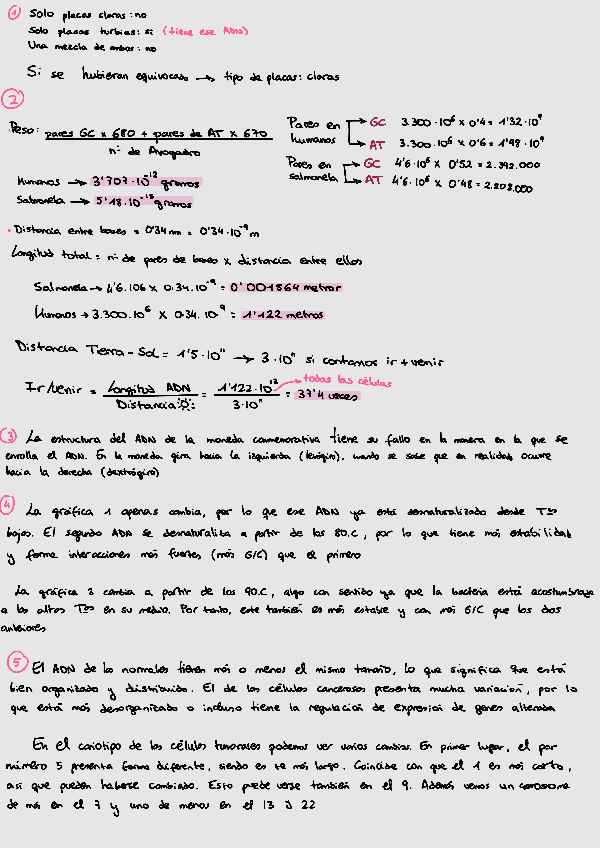 ① Solo placas claras: no
Solo placas turbias: si (tiene ese ADN)
Una mezcla de ambas: no
Si se hubieran equivocado → tipo de placas: claras
②
· Peso: pares GC x 680 + pares de AT x 670
nº de Avogadro
Pares en humanos → GC 3.300·10⁶ x 0'4 = 1'32·10⁹
→ AT 3.300·10⁶ x 0'6 = 1'98·10⁹
Pares en salmonela → GC 4'6·10⁶ x 0'52 = 2.392.000
→ AT 4'6·10⁶ x 0'48 = 2.208.000
Humanos → 3'707·10⁻¹² gramos
Salmonela → 5'18·10⁻¹⁵ gramos
· Distancia entre bases = 0'34 nm = 0'34·10⁻⁹ m
Longitud total = nº de pares de bases x distancia entre ellos
Salmonela → 4'6.106 x 0.34.10⁻⁹ = 0'001564 metros
Humanos → 3.300.10⁶ x 0.34.10⁻⁹ = 1'122 metros
Distancia Tierra - Sol = 1'5·10¹¹ → 3·10¹¹ si contamos ir + venir
Ir/venir = Longitud ADN / Distancia = 1'122·10¹³ / 3·10¹¹ = 37'4 veces
→ todas las células
③ La estructura del ADN de la moneda conmemorativa tiene su fallo en la manera en la que se
enrolla el ADN. En la moneda gira hacia la izquierda (levógiro), cuando se sabe que en realidad ocurre
hacia la derecha (dextrógiro)
④ La gráfica 1 apenas cambia, por lo que ese ADN ya está desnaturalizado desde Tªs
bajas. El segundo ADN se desnaturaliza a partir de los 80.C, por lo que tiene más estabilidad
y forma interacciones más fuertes (más G/C) que el primero
La gráfica 3 cambia a partir de los 90.C, algo con sentido ya que la bacteria está acostumbrada
a las altas Tªs en su medio. Por tanto, este también es más estable y con más G/C que los dos
anteriores
⑤ El ADN de las normales tienen más o menos el mismo tamaño, lo que significa que está
bien organizado y distribuido. El de las células cancerosas presenta mucha variación, por lo
que está más desorganizado o incluso tiene la regulación de expresión de genes alterada
En el cariotipo de las células tumorales podemos ver varios cambios. En primer lugar, el par
número 5 presenta forma diferente, siendo este más largo. Coincide con que el 1 es más corto,
así que pueden haberse cambiado. Esto puede verse también en el 9. Además vemos un cromosoma
de más en el 7 y uno de menos en el 13 y 22